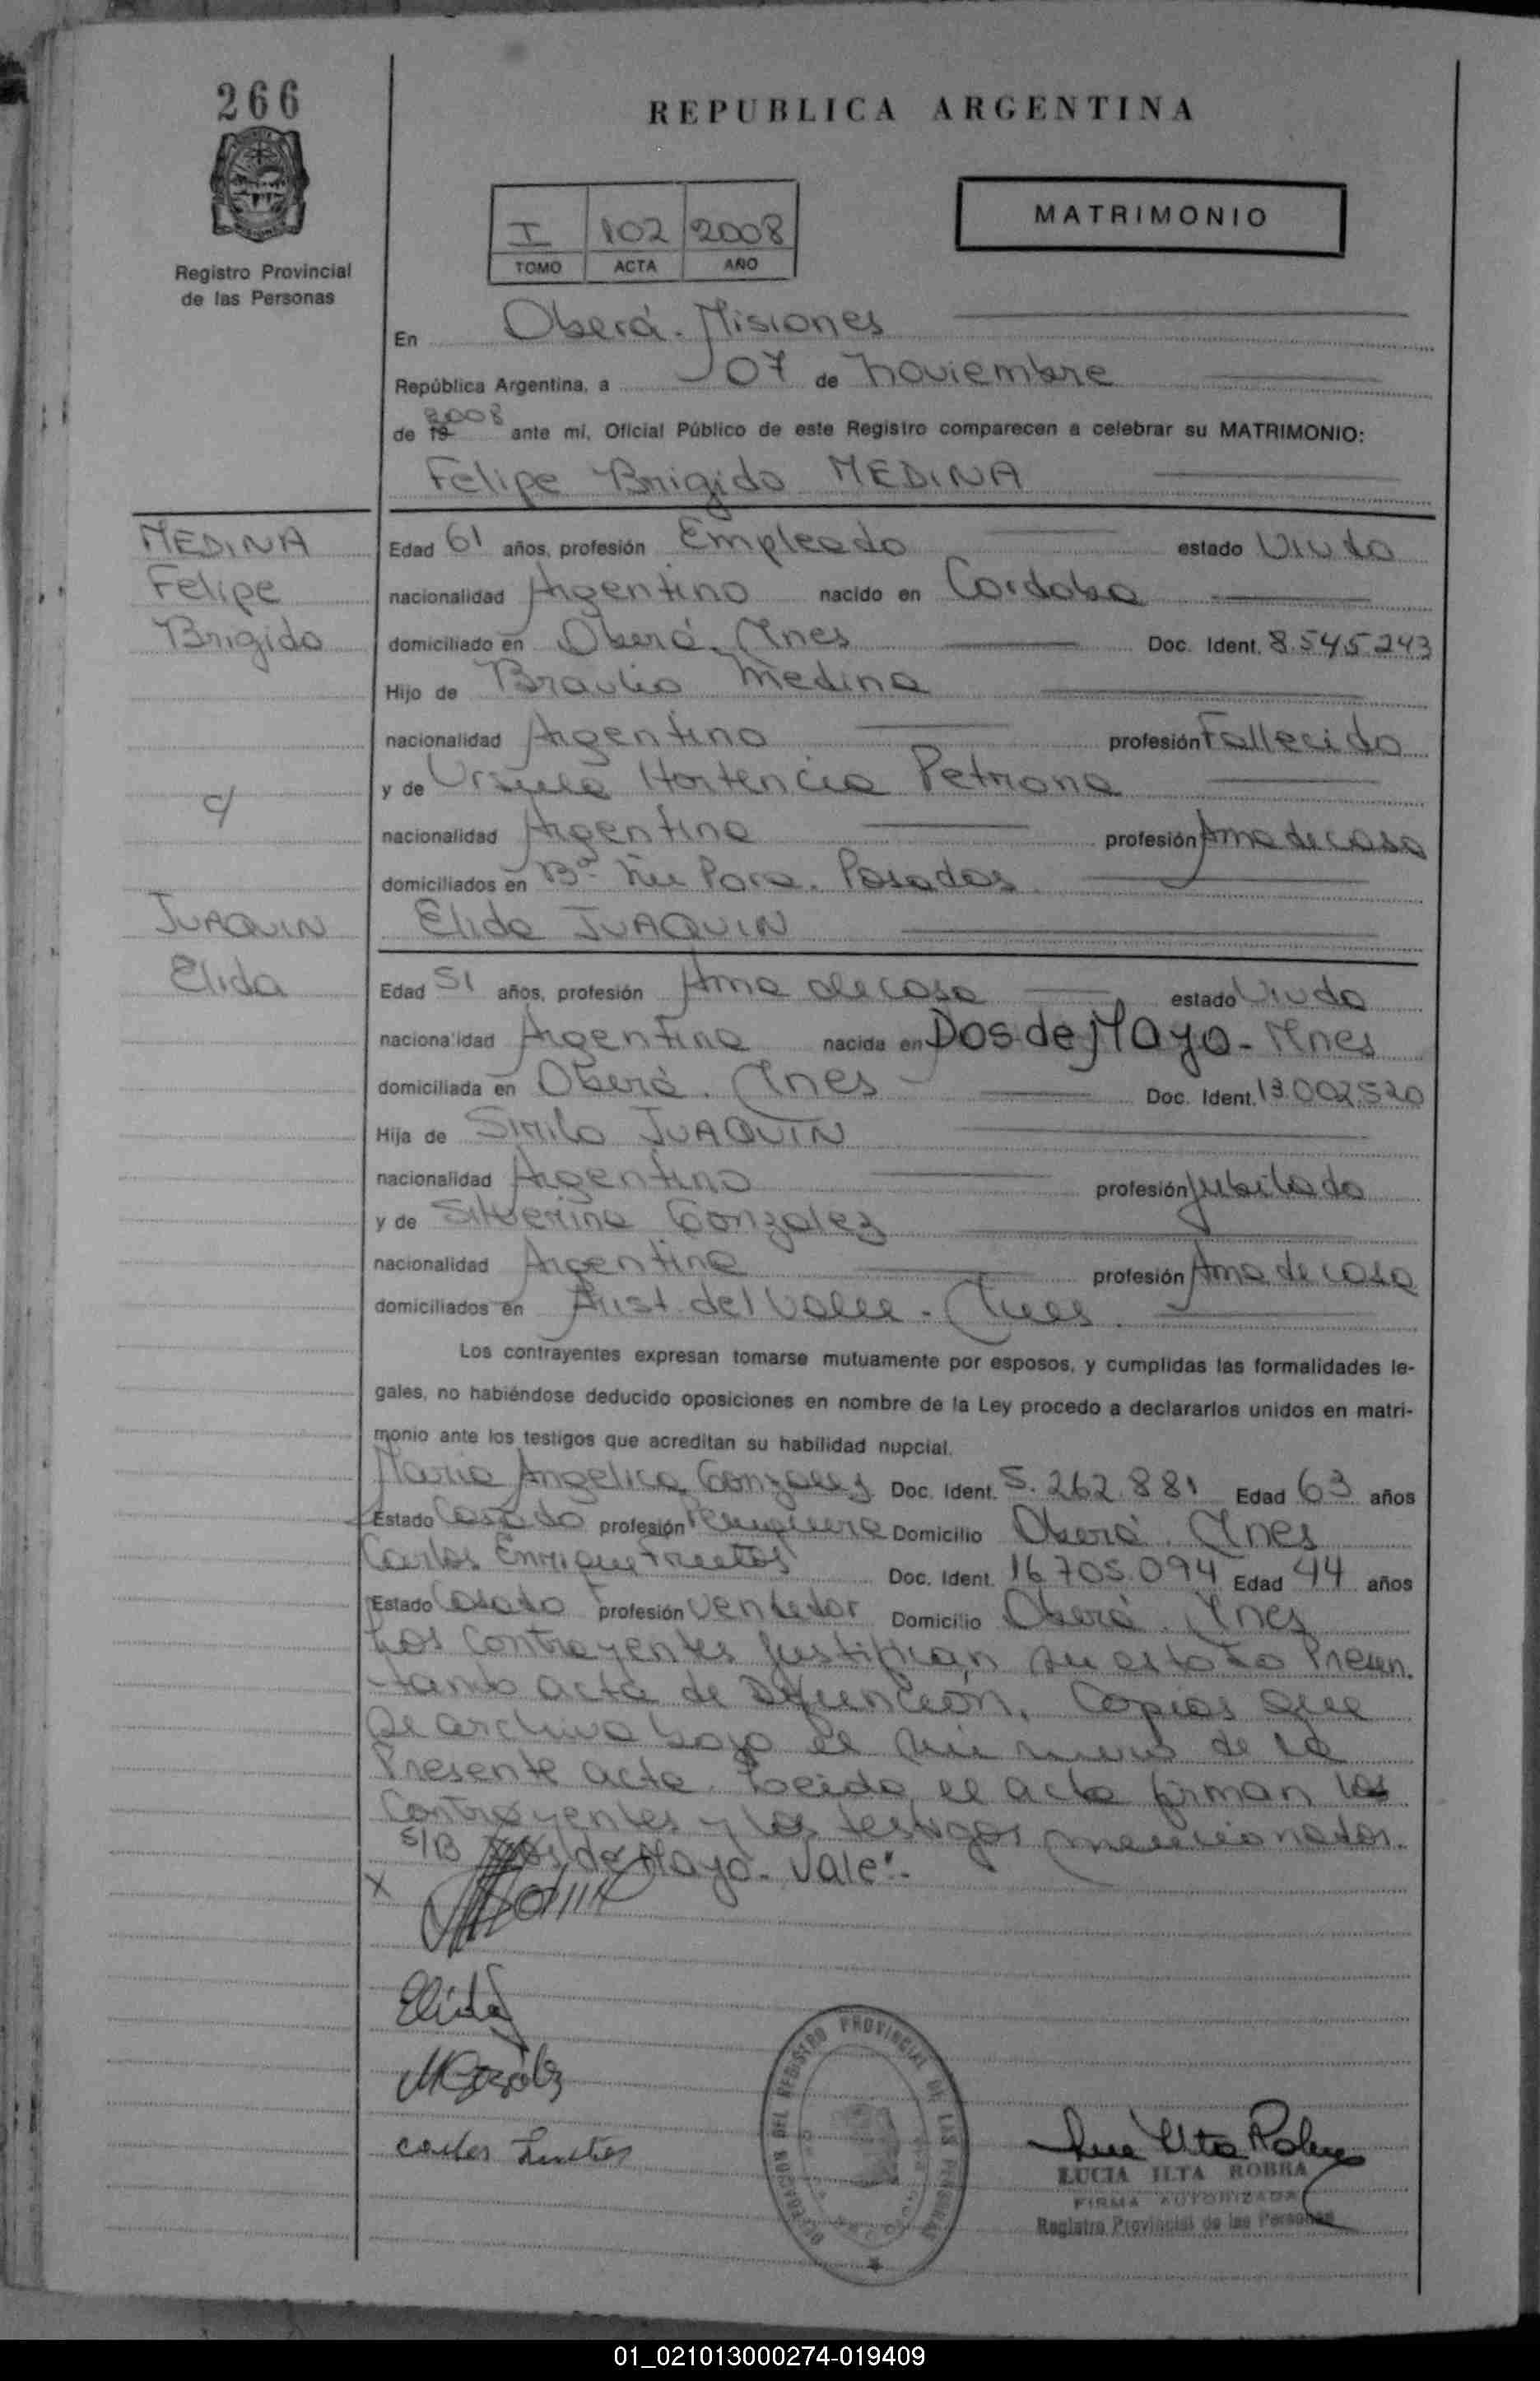 266
REPUBLICA ARGENTINA
I 102 2008
TOMO ACTA AÑO
MATRIMONIO
Registro Provincial
de las Personas
En Oberá - Misiones
República Argentina, a 07 de noviembre
de 19 2008 ante mí, Oficial Público de este Registro comparecen a celebrar su MATRIMONIO:
Felipe Brigido MEDINA
MEDINA
Felipe
Brigido
c/
JUAQUIN
Elida
Edad 61 años, profesión Empleado estado Viudo
nacionalidad Argentino nacido en Cordoba
domiciliado en Oberá. Mnes Doc. Ident. 8.545.243
Hijo de Braulio Medina
nacionalidad Argentino profesión Fallecido
y de Ursula Hortencia Petrona
nacionalidad Argentina profesión Ama de casa
domiciliados en Bº Posadas
Elida JUAQUIN
Edad 51 años, profesión Ama de casa estado Viuda
nacionalidad Argentina nacida en Dos de Mayo - Mnes
domiciliada en Oberá. Mnes Doc. Ident. 13.002.520
Hija de Sirilo JUAQUIN
nacionalidad Argentino profesión Jubilado
y de Silverina Gonzalez
nacionalidad Argentina profesión Ama de casa
domiciliados en Arist. del Valle - Mnes.
Los contrayentes expresan tomarse mutuamente por esposos, y cumplidas las formalidades le-
gales, no habiéndose deducido oposiciones en nombre de la Ley procedo a declararlos unidos en matri-
monio ante los testigos que acreditan su habilidad nupcial.
Maria Angelica Gonzalez Doc. Ident. 5.262.881 Edad 63 años
Estado Casado profesión Peluquera Domicilio Oberá. Mnes
Carlos Enrique Fruetos Doc. Ident. 16.705.094 Edad 44 años
Estado Casado profesión Vendedor Domicilio Oberá. Mnes
Los contrayentes justifican su estado Presen-
tando acta de Defunción, Copias que
se archiva bajo el de la
Presente acta. Leida el acta firman los
Contrayentes y los testigos mencionados.
S/B Dos de Mayo - Vale.-
X
Elida
MGonzalez
Carlos Fruetos
DELEGACION DEL REGISTRO PROVINCIAL DE LAS PERSONAS
LUCIA ILTA ROBRA
FIRMA AUTORIZADA
Registro Provincial de las Personas
01_021013000274-019409